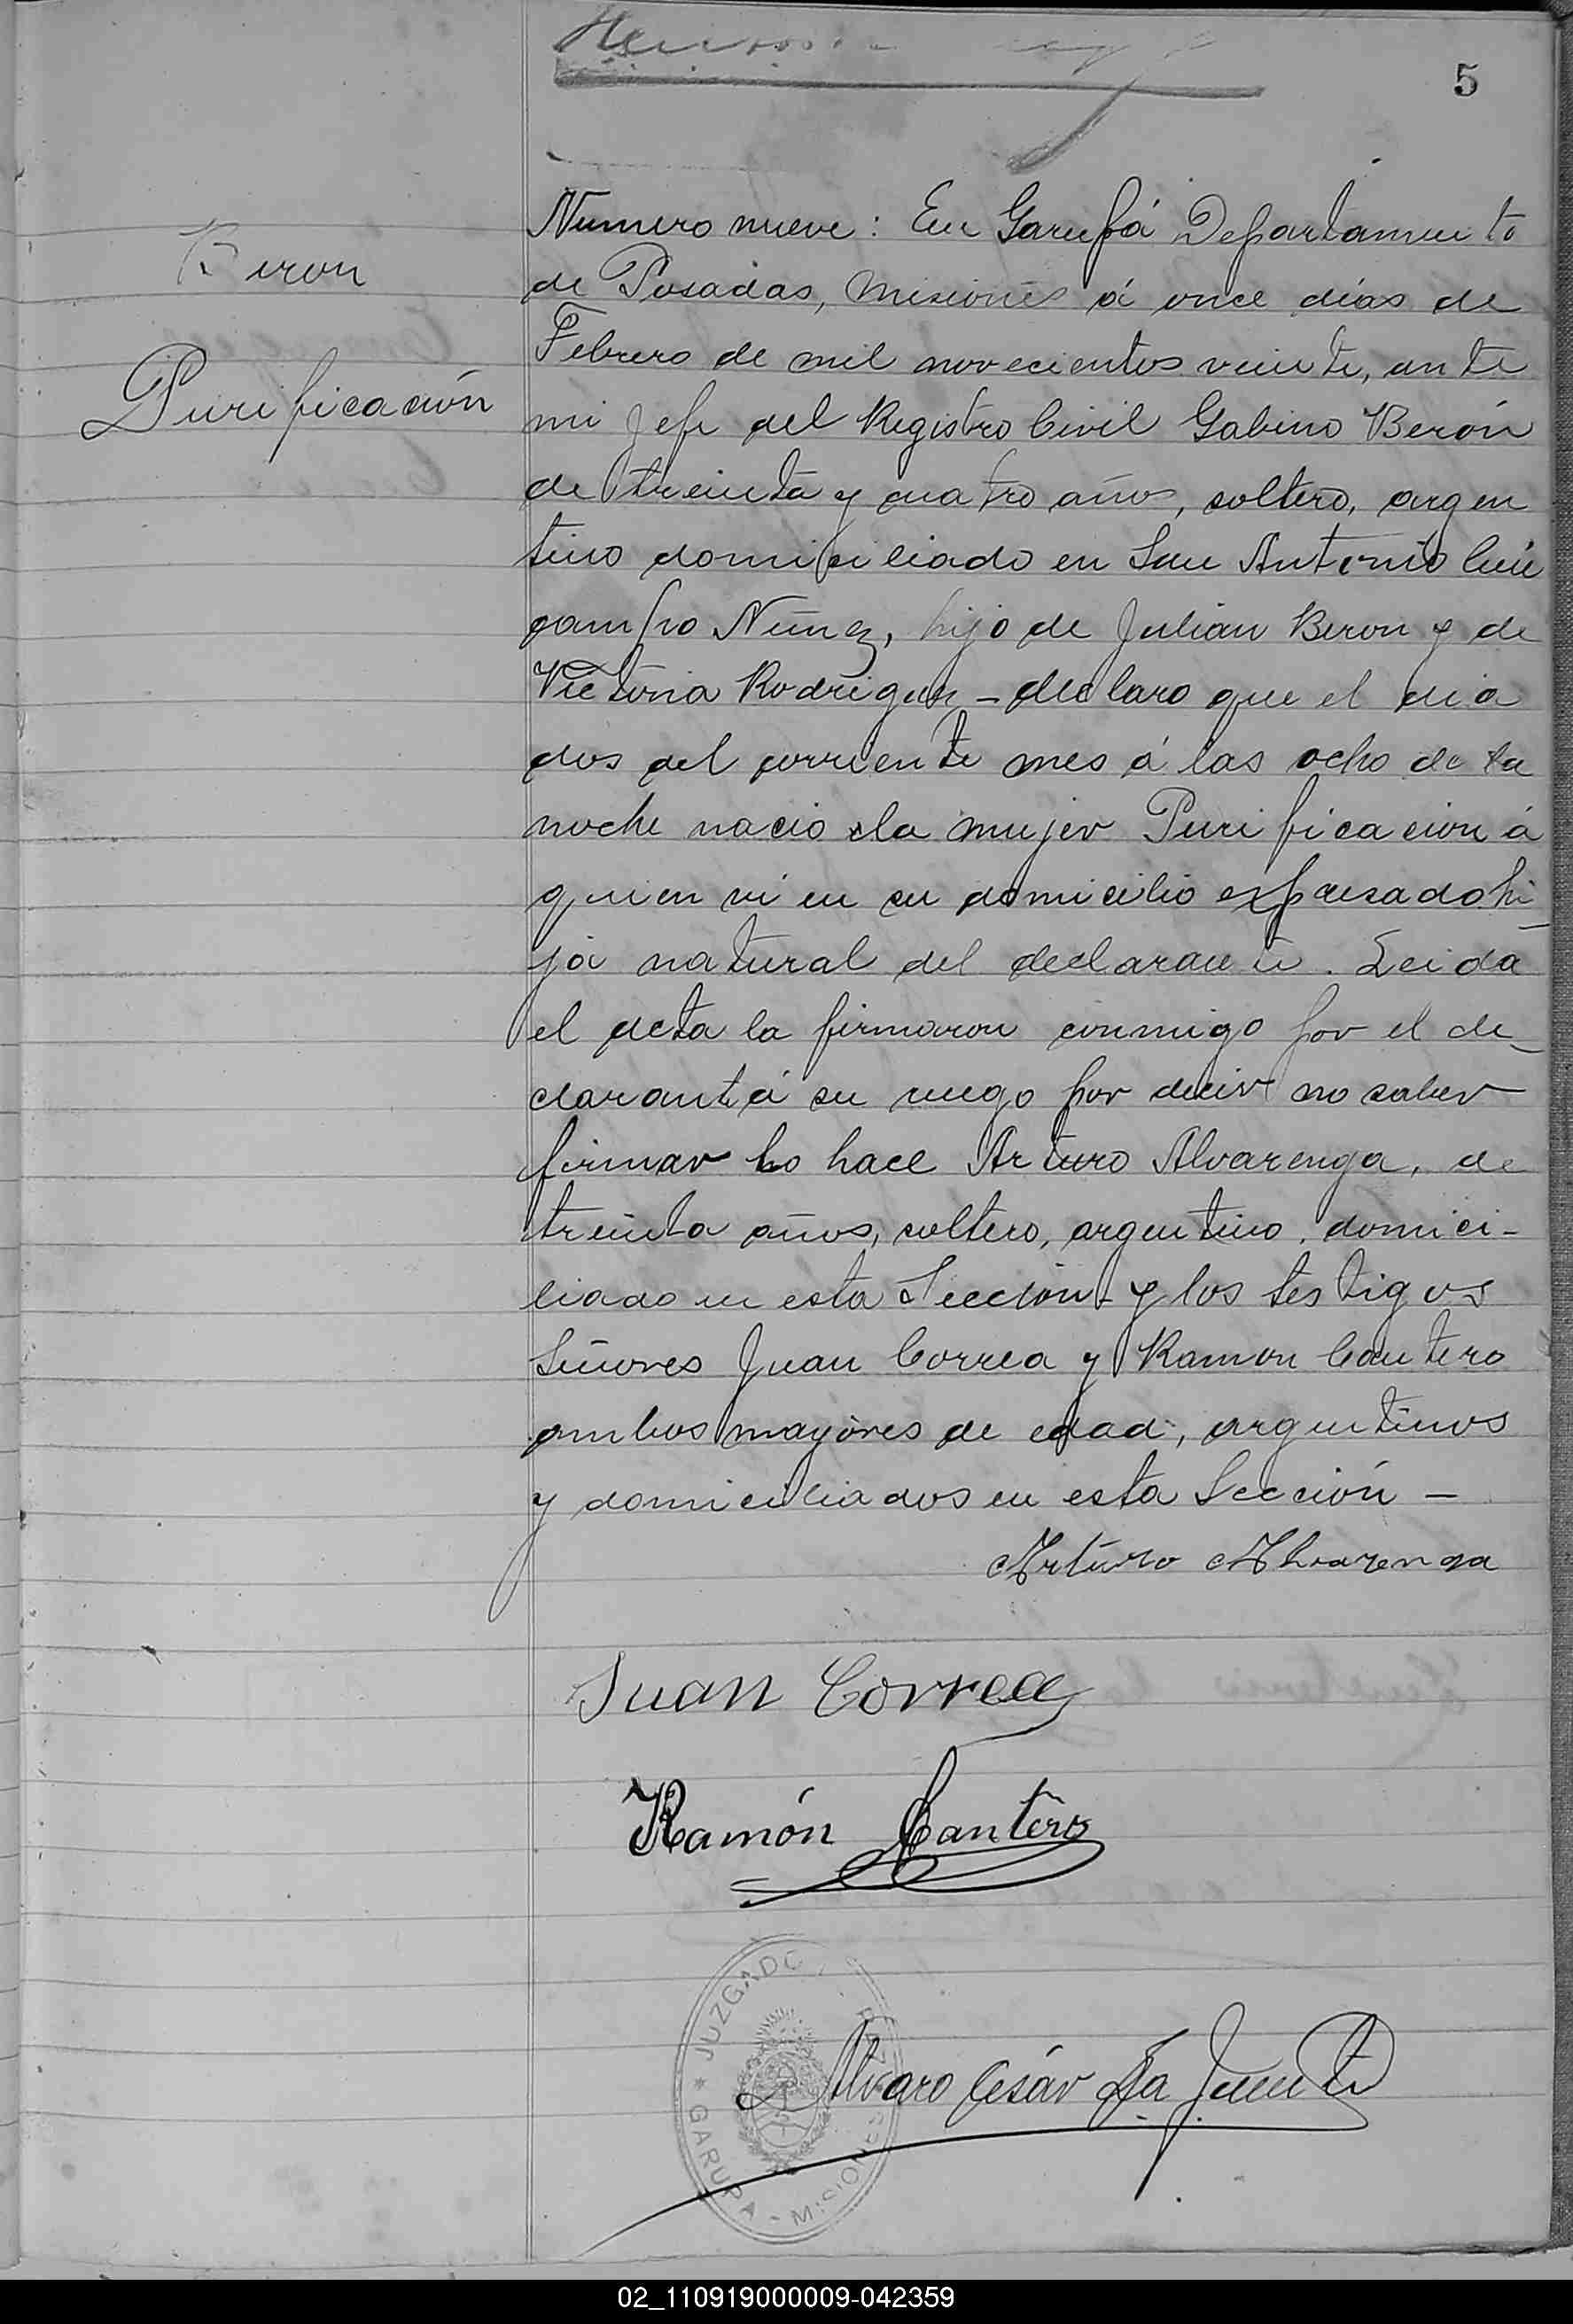 5
Beron
Purificación
Numero nueve: En Garupá Departamento
de Posadas, Misiones á once dias de
Febrero de mil novecientos veinte, ante
mi Jefe del Registro Civil Gabino Berón
de treinta y cuatro años, soltero, argen
tino domiciliado en San Antonio
campo Núñez, hijo de Julian Beron y de
Victoria Rodriguez - declaro que el dia
dos del corriente mes á las ocho de la
noche nacio la mujer Purificacion á
quien vi en su domicilio expresado hi
ja natural del declarante. Leida
el acta la firmaron conmigo por el de_
clarante á su ruego por decir no saber
firmar lo hace Arturo Alvarenga, de
treinta años, soltero, argentino, domici-
liado en esta Sección - y los testigos
Señores Juan Correa y Ramon Cantero
ambos mayores de edad, argentinos
y domiciliados en esta Sección -
Arturo Alvarenga
Juan Correa
Ramón Cantero
JUZGADO
GARUPA - MISIONES
Alvaro César
02_110919000009-042359